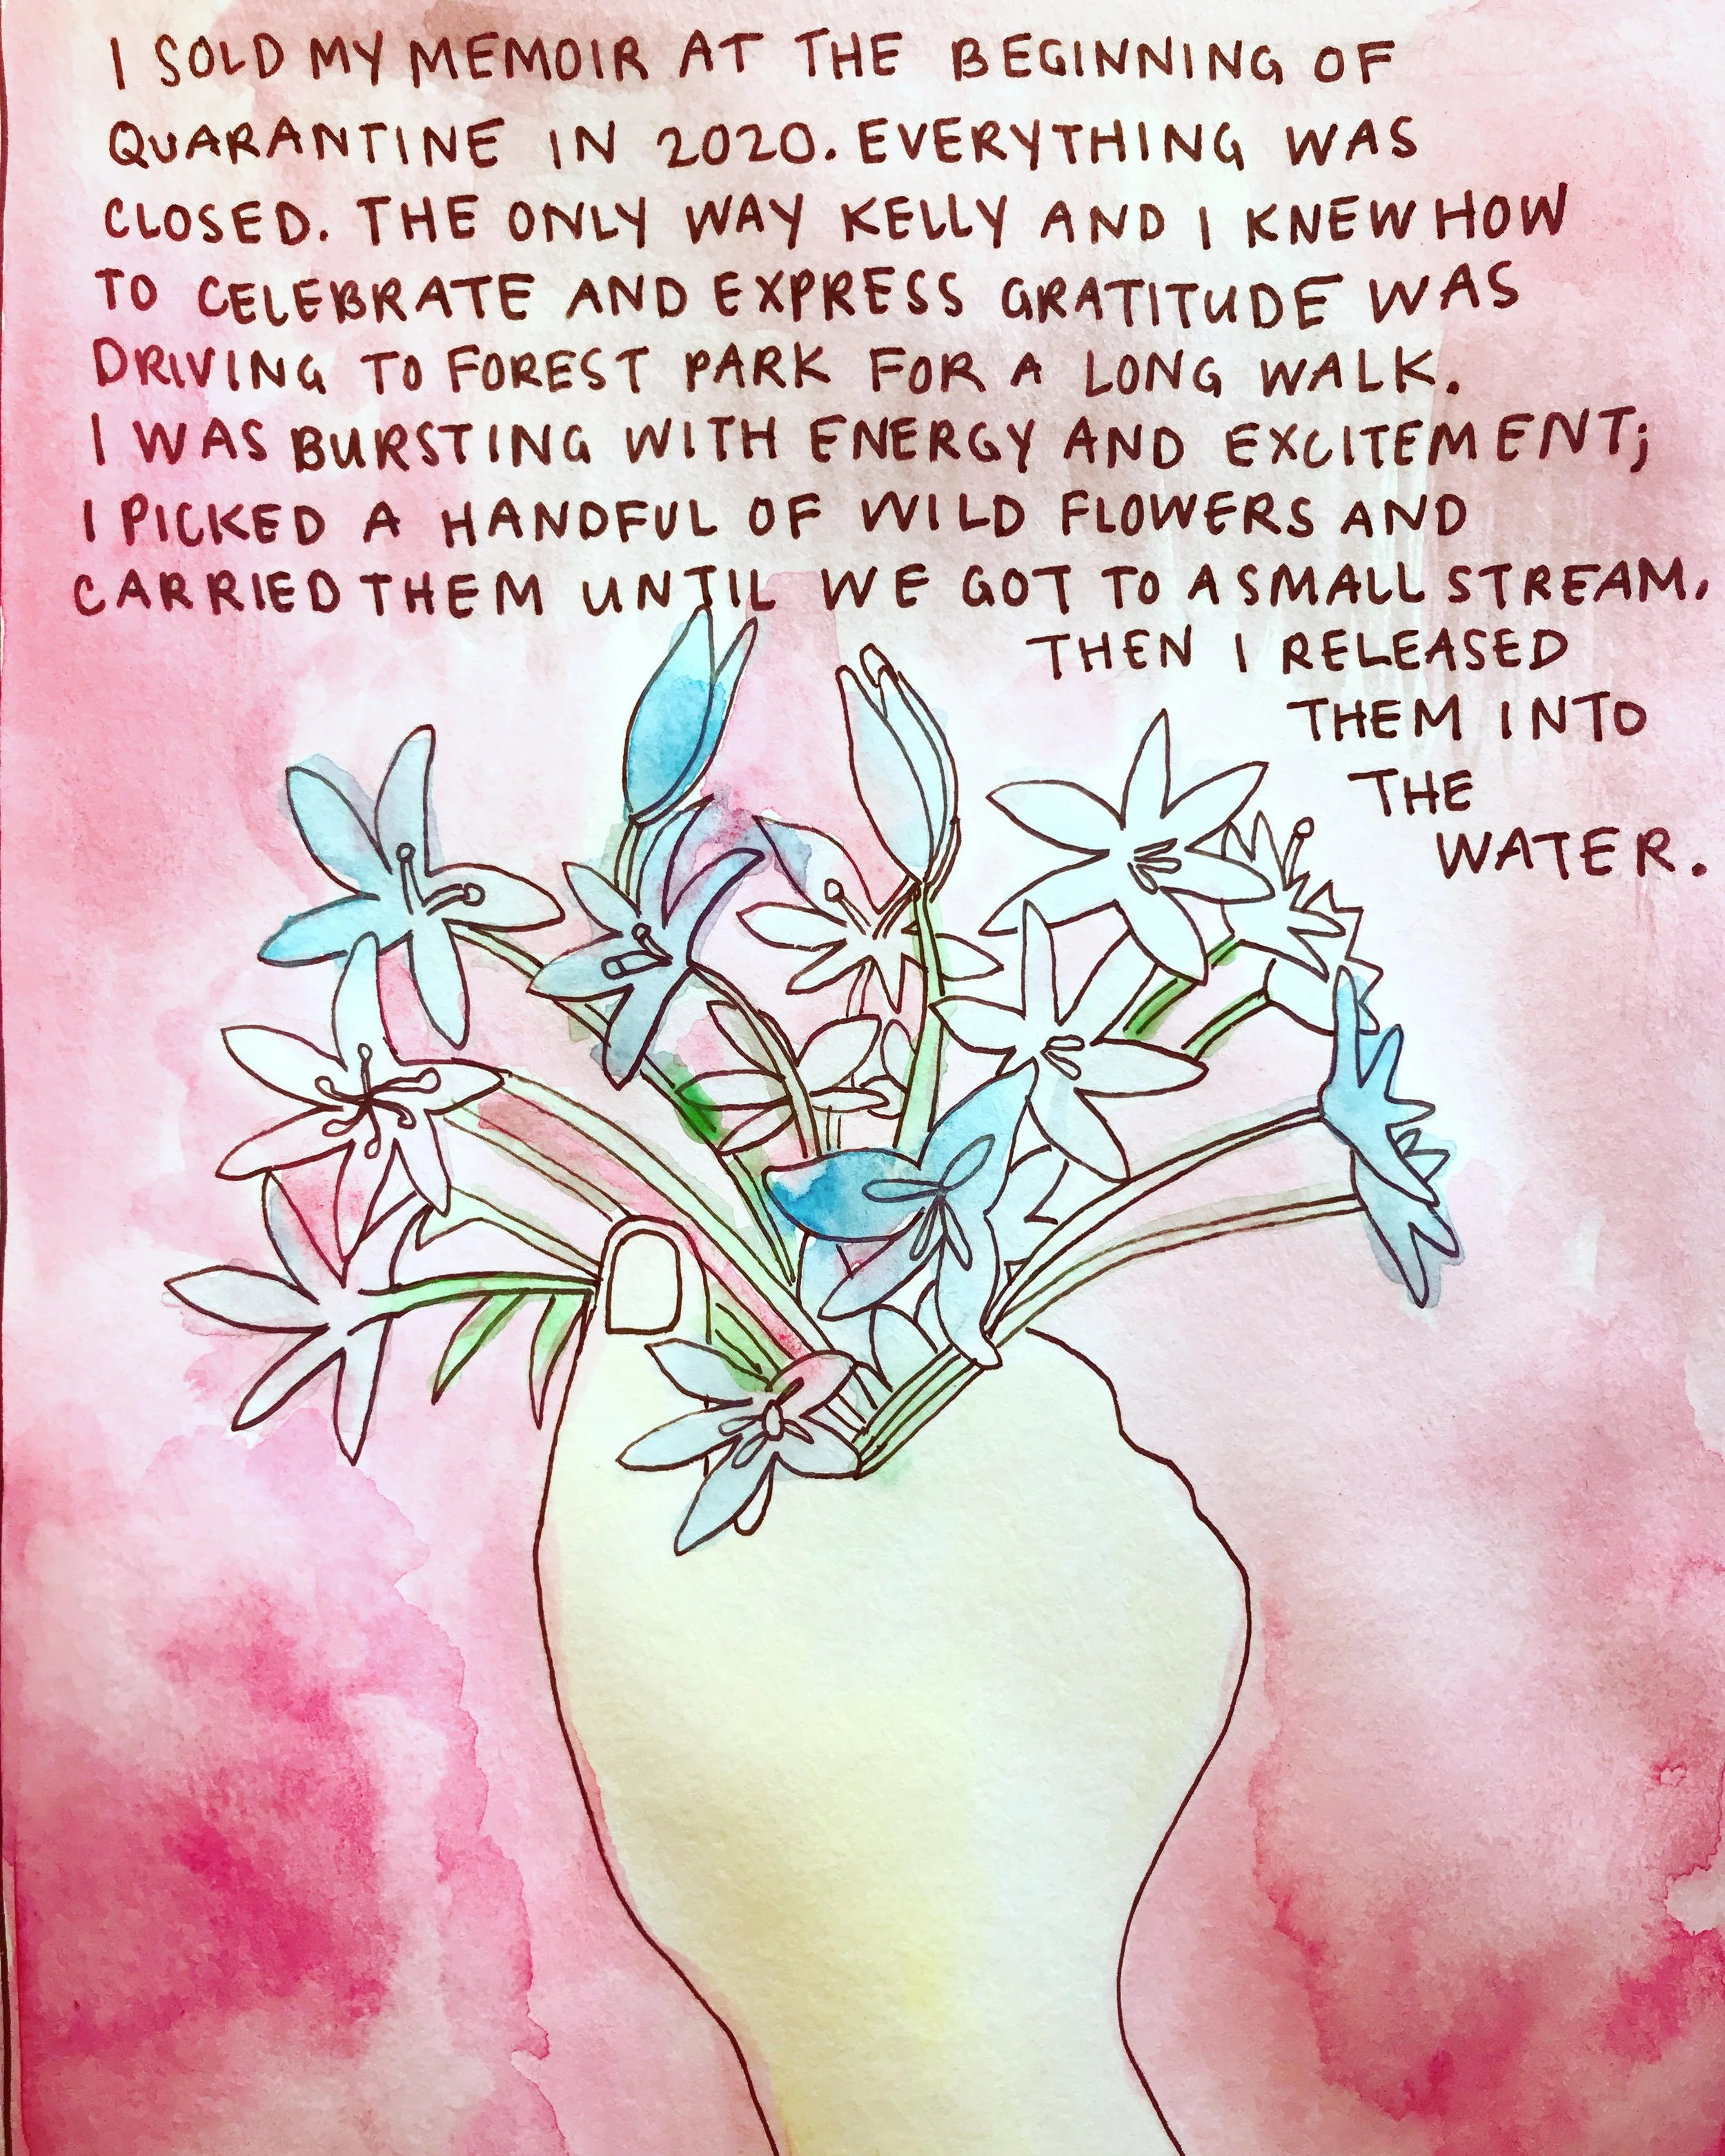 I SOLD MY MEMOIR AT THE BEGINNING OF
QUARANTINE IN 2020. EVERYTHING WAS
CLOSED. THE ONLY WAY KELLY AND I KNEW HOW
TO CELEBRATE AND EXPRESS GRATITUDE WAS
DRIVING TO FOREST PARK FOR A LONG WALK.
I WAS BURSTING WITH ENERGY AND EXCITEMENT;
I PICKED A HANDFUL OF WILD FLOWERS AND
CARRIED THEM UNTIL WE GOT TO A SMALL STREAM.
THEN I RELEASED
THEM INTO
THE
WATER.